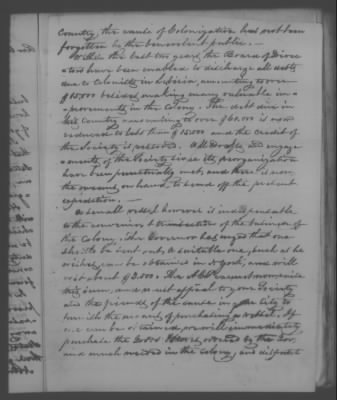 Country, the cause of Colonization has not been
forgotten by the benevolent public. —
Within the last two years, the Board of Direc
tors have been enabled to discharge all debts
due to Colonists in Liberia, amounting to over
$15,000 besides making many valuable im
provements in the Colony. The debt due in
this Country amounting to over $60,000 is now
reduced to less than $15,000 and the credit of
the Society is restored. All Drafts and engage
ments of the Society since its reorganization
have been punctually met, and there is now
the means on hand, to send off the present
expedition. —
A small vessel however is indispensable
to the convenient transaction of the business of
the Colony. The Governor has urged that one
should be sent out, a suitable one, such as he
wishes, can be obtained in and will
cost about $3,000. The A.C.S. cannot now raise
this sum, and so must appeal to your Society
and the friends of the cause in your City to
furnish the means of purchasing a vessel. If
one can be obtained, we will immediately
purchase the Goods ordered by the Gov.
and much needed in the Colony, and dispatch